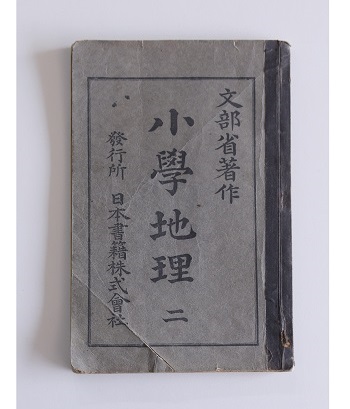 文部省著作
小學地理 二
發行所 日本書籍株式會社